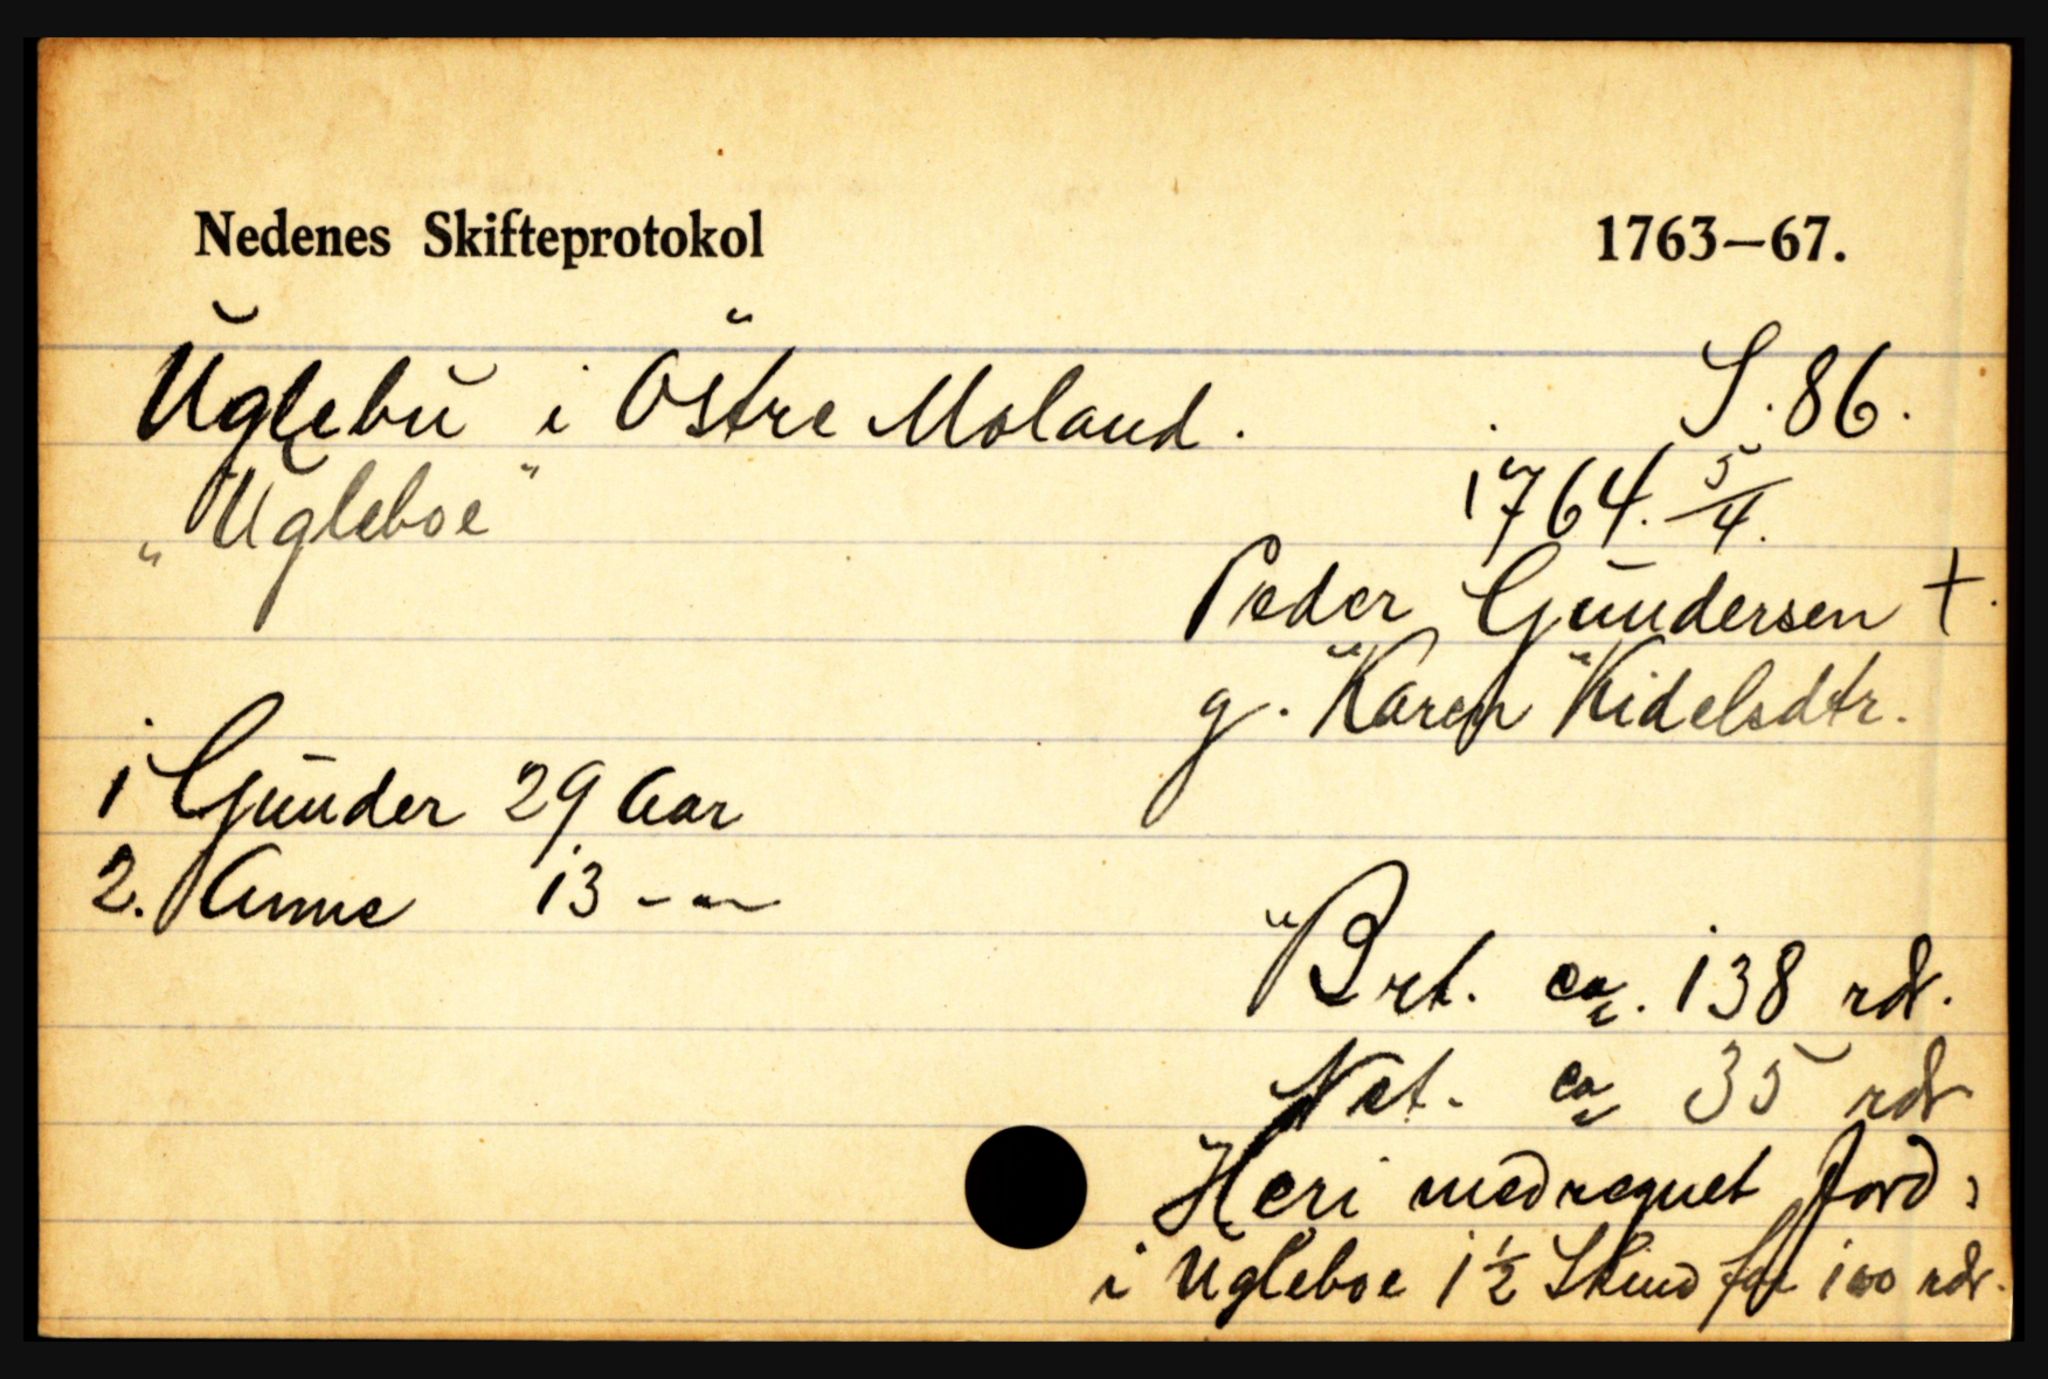 Nedenes Skifteprotokol 1763–67.
Uglebu i Östre Moland. S. 86.
„Ugleboe" 1764. 5/4.
Peder Gundersen +.
g. Karen Kidelsdtr.
1 Gunder 29 Aar
2. Anne 13 - "-
Brt. ca. 138 rdr.
Net. ca 35 rdr
Heri medregnet Jord:
i Ugleboe 1 1/2 Skind for 100 rdr.